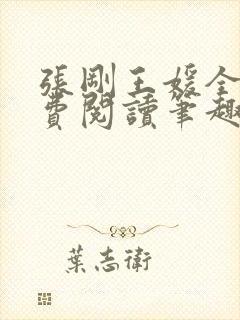 張剛王媛全
費閱讀筆趣
葉志衛